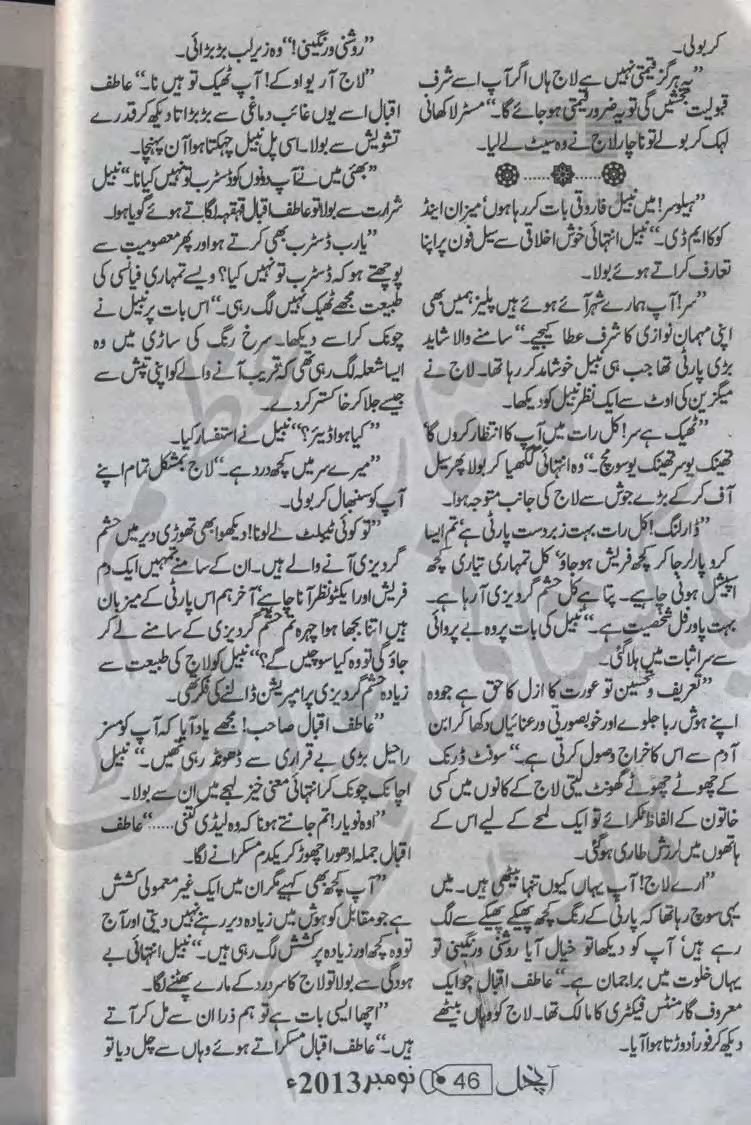 کر بولی۔
”یہ ہرگز قیمتی نہیں ہے لاج ہاں اگر آپ اسے شرف
قبولیت بخشیں گی تو یہ ضرور قیمتی ہوجائے گا۔“ مسٹر لاکھانی
لہک کر بولے تو ناچار لاج نے وہ سیٹ لے لیا۔
”ہیلو سر! میں نبیل فاروقی بات کررہا ہوں‘ میزان اینڈ
کو کا ایم ڈی۔“ نبیل انتہائی خوش اخلاقی سے سیل فون پر اپنا
تعارف کراتے ہوئے بولا۔
”سر! آپ ہمارے شہر آئے ہوئے ہیں پلیز ہمیں بھی
اپنی مہمان نوازی کا شرف عطا کیجیے۔“ سامنے والا شاید
بڑی پارٹی تھا جب ہی نبیل خوشامد کررہا تھا۔ لاج نے
میگزین کی اوٹ سے ایک نظر نبیل کو دیکھا۔
”ٹھیک ہے سر! کل رات میں آپ کا انتظار کروں گا‘
تھینک یو سر تھینک یو سو مچ۔“ وہ انتہائی گھگھیا کر بولا پھر سیل
آف کرکے بڑے جوش سے لاج کی جانب متوجہ ہوا۔
”ڈارلنگ! کل رات بہت زبردست پارٹی ہے‘ تم ایسا
کرو پارلر جاکر کچھ فریش ہوجاؤ‘ کل تمہاری تیاری کچھ
اسپیشل ہونی چاہیے۔ پتا ہے کل حشم گردیزی آرہا ہے۔
بہت پاورفل شخصیت ہے۔“ نبیل کی بات پر وہ بے پروائی
سے سر اثبات میں ہلا گئی۔
”تعریف و تحسین تو عورت کا ازل کا حق ہے جو وہ
اپنے ہوش ربا جلوے اور خوبصورتی و رعنائیاں دکھا کر ابن
آدم سے اس کا خراج وصول کرتی ہے۔“ سوفٹ ڈرنک
کے چھوٹے چھوٹے گھونٹ لیتی لاج کے کانوں میں کسی
خاتون کے الفاظ ٹکرائے تو ایک لمحے کے لیے اس کے
ہاتھوں میں لرزش طاری ہوگئی۔
”ارے لاج! آپ یہاں کیوں تنہا بیٹھی ہیں۔ میں
یہی سوچ رہا تھا کہ پارٹی کے رنگ کچھ پھیکے پھیکے سے لگ
رہے ہیں‘ آپ کو دیکھا تو خیال آیا روشنی و رنگینی تو
یہاں خلوت میں براجمان ہے۔“ عاطف اقبال جو ایک
معروف گارمنٹس فیکٹری کا مالک تھا۔ لاج کو وہاں بیٹھے
دیکھ کر فوراً دوڑتا ہوا آیا۔
”روشنی و رنگینی!“ وہ زیرلب بڑبڑائی۔
”لاج آر یو اوکے! آپ ٹھیک تو ہیں نا۔“ عاطف
اقبال اسے یوں غائب دماغی سے بڑبڑاتا دیکھ کر قدرے
تشویش سے بولا۔ اسی پل نبیل چہکتا ہوا آن پہنچا۔
”بھئی میں نے آپ دونوں کو ڈسٹرب تو نہیں کیا نا۔“ نبیل
شرارت سے بولا تو عاطف اقبال قہقہہ لگاتے ہوئے گویا ہوا۔
”یار ب ڈسٹرب بھی کرتے ہو اور پھر معصومیت سے
پوچھتے ہو کہ ڈسٹرب تو نہیں کیا؟ ویسے تمہاری فیانسی کی
طبیعت مجھے ٹھیک نہیں لگ رہی۔“ اس بات پر نبیل نے
چونک کر اسے دیکھا۔ سرخ رنگ کی ساڑی میں وہ
ایسا شعلہ لگ رہی تھی کہ قریب آنے والے کو اپنی تپش سے
جیسے جلا کر خاکستر کردے۔
”کیا ہوا ڈیئر؟“ نبیل نے استفسار کیا۔
”میرے سر میں کچھ درد ہے۔“ لاج بمشکل تمام اپنے
آپ کو سنبھال کر بولی۔
”تو کوئی ٹیبلٹ لے لو نا! دیکھو ابھی تھوڑی دیر میں حشم
گردیزی آنے والے ہیں۔ ان کے سامنے تمہیں ایک دم
فریش اور ایکٹو نظر آنا چاہیے‘ آخر ہم اس پارٹی کے میزبان
ہیں اتنا بجھا ہوا چہرہ تم حشم گردیزی کے سامنے لے کر
جاؤ گی تو وہ کیا سوچیں گے؟“ نبیل کو لاج کی طبیعت سے
زیادہ حشم گردیزی پر امپریشن ڈالنے کی فکر تھی۔
”عاطف اقبال صاحب! مجھے یاد آیا کہ آپ کو مسز
راحیل بڑی بے قراری سے ڈھونڈ رہی تھیں۔“ نبیل
اچانک چونک کر انتہائی معنی خیز لہجے میں ان سے بولا۔
”اوہ نو یار! تم جانتے ہو نا کہ وہ لیڈی کتنی.....“ عاطف
اقبال جملہ ادھورا چھوڑ کر یکدم مسکرانے لگا۔
”آپ کچھ بھی کہیے مگر ان میں ایک غیر معمولی کشش
ہے جو مقابل کو ہوش میں زیادہ دیر رہنے نہیں دیتی اور آج
تو وہ کچھ اور زیادہ پرکشش لگ رہی ہیں۔“ نبیل انتہائی بے
ہودگی سے بولا تو لاج کا سر درد کے مارے پھٹنے لگا۔
”اچھا ایسی بات ہے تو ہم ذرا ان سے مل کر آتے
ہیں۔“ عاطف اقبال مسکراتے ہوئے وہاں سے چل دیا تو
آنچل 46 نومبر 2013ء